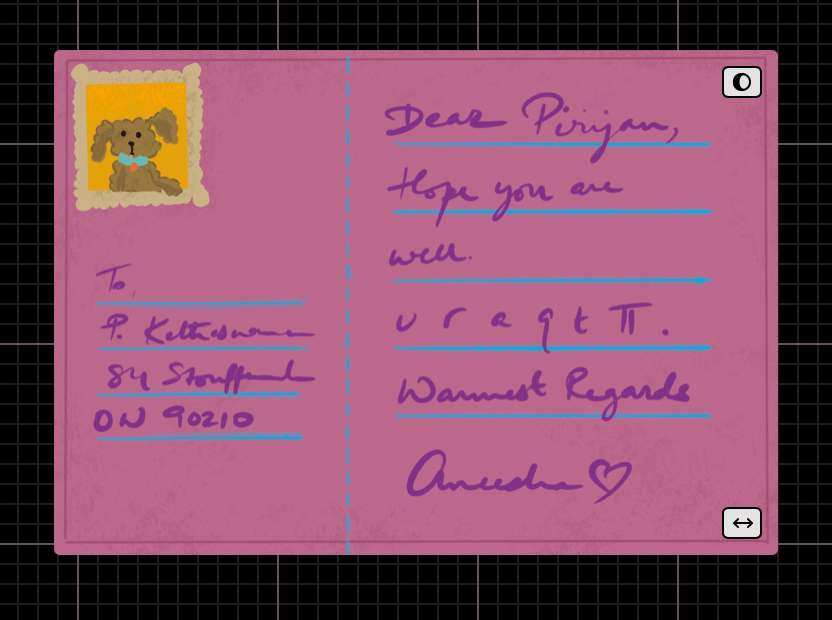 To,
P. Ketheswaran
84 Stouffand
ON 90210
Dear Pirijan,
Hope you are
well.
u r a q t π.
Warmest Regards
Anusha♡